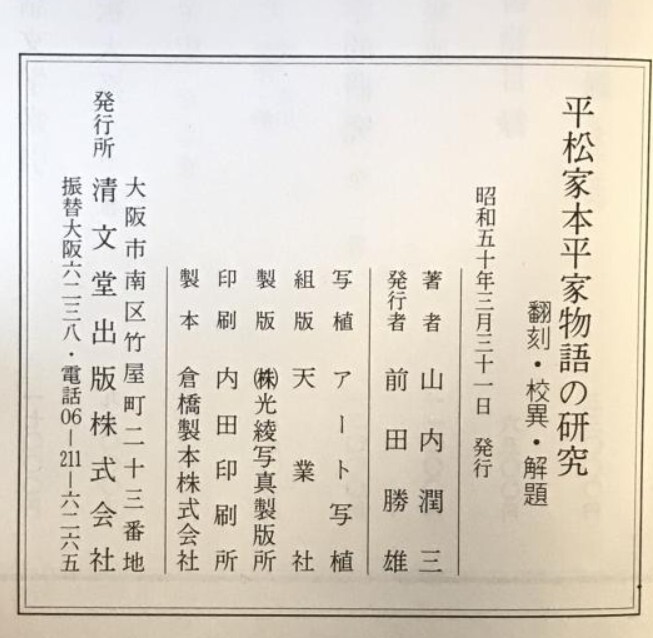 平松家本平家物語の研究
翻刻・校異・解題
昭和五十年三月三十一日 発行
著者 山内潤三
発行者 前田勝雄
写植 アート写植
組版 天業社
製版 ㈱光綾写真製版所
印刷 内田印刷所
製本 倉橋製本株式会社
大阪市南区竹屋町二十三番地
発行所 清文堂出版株式会社
振替大阪六二三八・電話06―211―六二六五